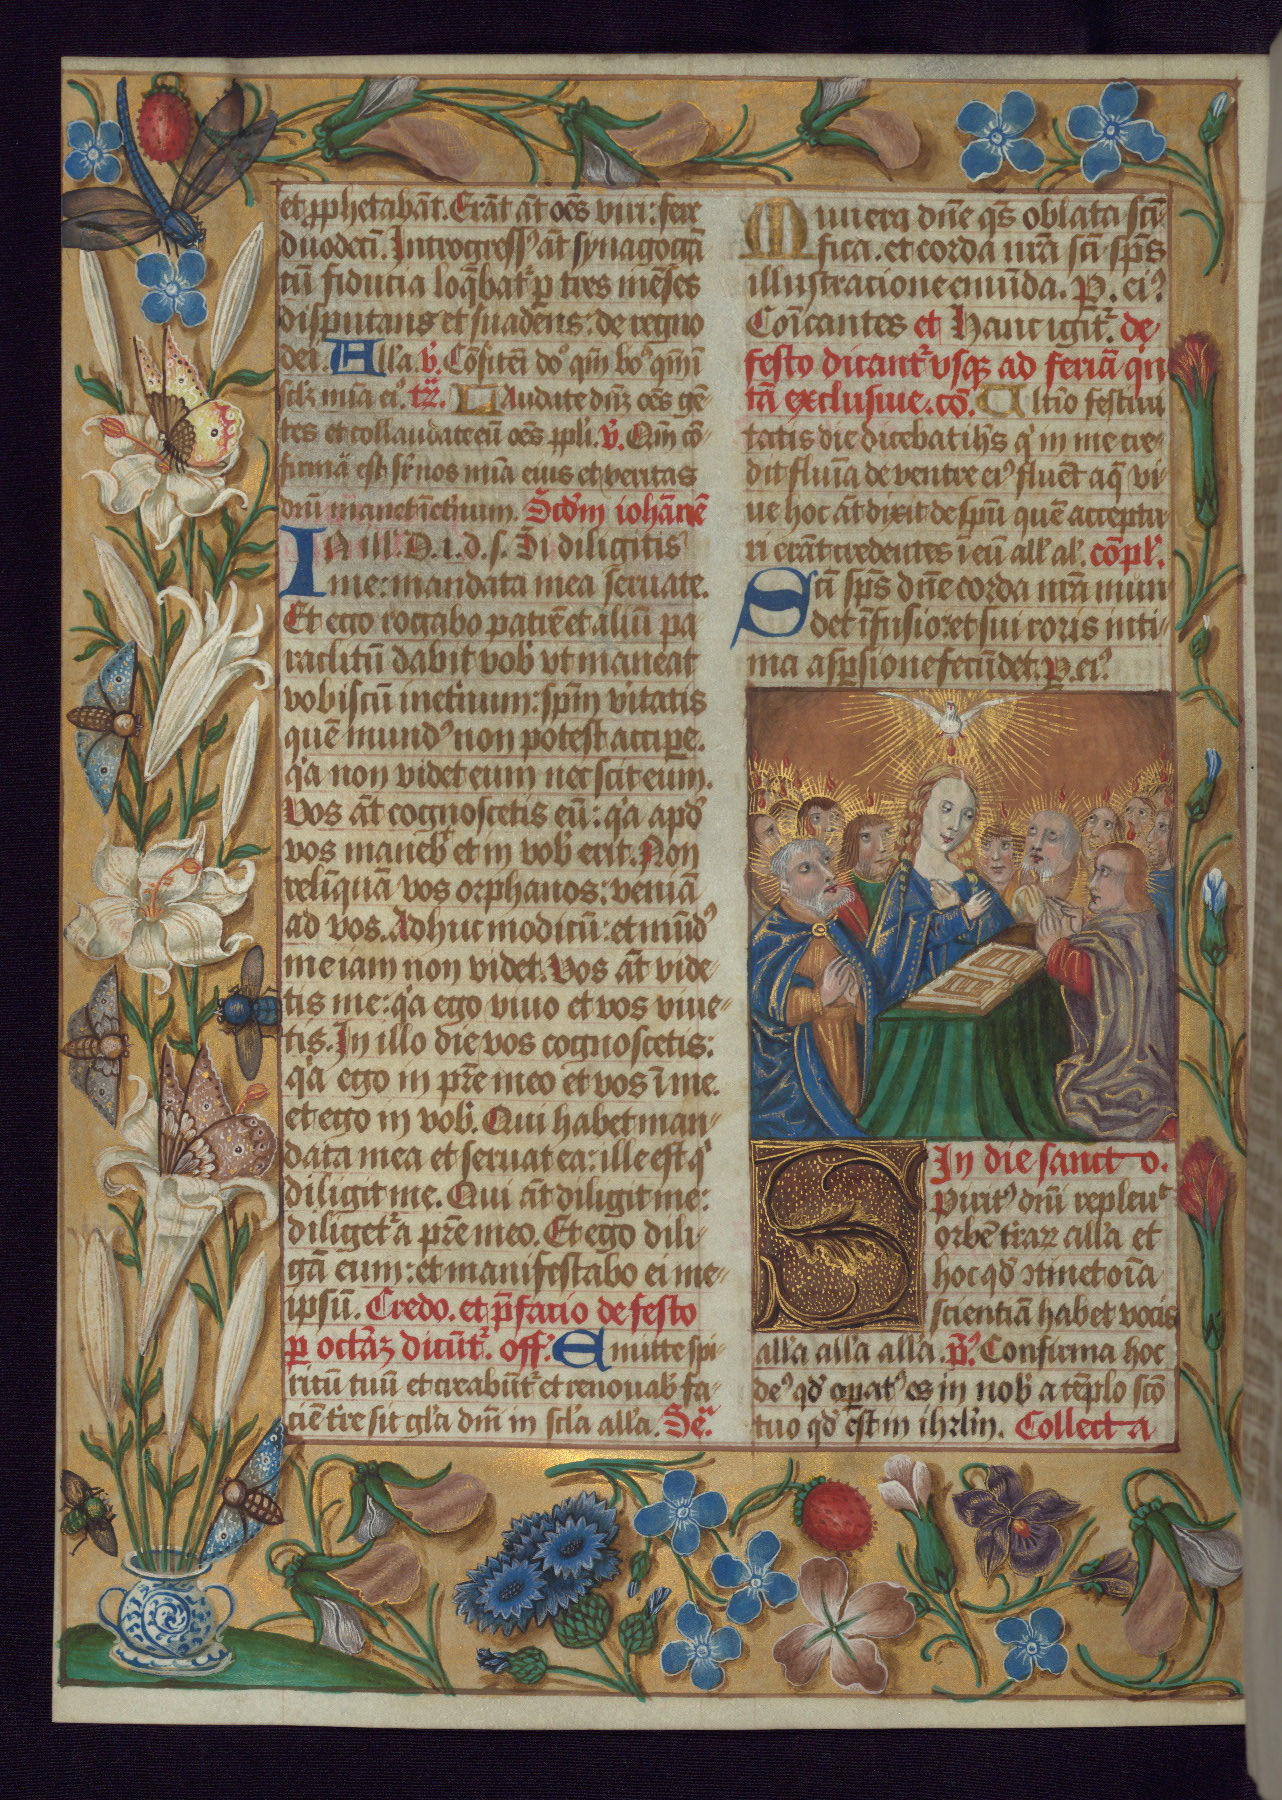 et ꝓphetabāt. Erāt āt oēs viri: fere
duodeci̅. Introgressꝰ āt synagogā
cū fiducia loq̄batr̉ ꝑ tres mēses
disputans et suadens: de regno
dei. All'a. v̉. Cōfitem̄ do͞ qm̄ boꝰ qm̄ ī
sclz mīa eiꝰ. tr̉. Laudate dn̄z oēs gē-
tes et collaudate eū oēs ppl̄i. v̉. Qm̄ cō-
firmā est sr̄ nos mīa eius et veritas
dn̄i manet ī et̉num. Scd̄m iohānē
In ill. D. i. d. s. Si diligitis
me: mandata mea seruate.
Et ego rogabo patrē et aliū pa
raclitū dabit vob̉ vt maneat
vobiscū inet̉num: spm̄ vitatis
quē mundꝰ non potest accipe.
q̉a non videt eum nec scit eum.
Vos āt cognoscetis eū: q̉a apd̉
vos maneb̉ et in vob̉ erit. Non
relīquā vos orphanos: veniā
ad vos. Adhuc modicū: et mūdꝰ
me iam non videt. Vos āt vide-
tis me: q̉a ego viuo et vos viue-
tis. In illo die vos cognoscetis:
q̉a ego in pr̄e meo et vos ī me.
et ego in vob̉. Qui habet man-
data mea et seruat ea: ille est q̉
diligit me. Qui āt diligit me:
diliget̉ a pr̄e meo. Et ego dili-
gā eum: et manifestabo ei me-
ipsū. Credo. et p̄facio de festo
ꝑ octāz dicūt̉. off̉. Emitte spi-
ritū tuū et creabūt̉ et renouab̉ fa-
ciē t̉re sit gl'a dn̄i in scl'a all'a. Se͛.
Munera dn̄e qs̄ oblata sc̄i-
fica. et corda nr̄a sc̄i sp̄s
illustracione emūda. P. eiꝰ
Cōicantes et Hanc igit̉. de
festo dicant̉ vsqꝫ ad feriā qn̄
tā exclusiue. cō. Vltīo festiui
tatis die dicebat ih̄s q̉ in me cre-
dit flūia de ventre eiꝰ fluēt aq̄ vi-
ue hoc āt dixit de spū quē acceptu
ri erāt credentes ī eū all' al'. cōpl'.
Sc̄i sp̄s dn̄e corda nr̄a mun
det īfusio: et sui roris inti-
ma aspsione fecūdet. P. eiꝰ
In die sancto.
Spiritꝰ dn̄i repleuit
orbē t̉rarꝝ all'a et
hoc qd̉ ꝯtinet oīa
scientiā habet vocis
all'a all'a all'a. p̄ꝰ. Confirma hoc
deꝰ qd̉ opatꝰ es in nob̉ a tēplo sc̄o
tuo qd̉ est in ihrl'm. Collecta